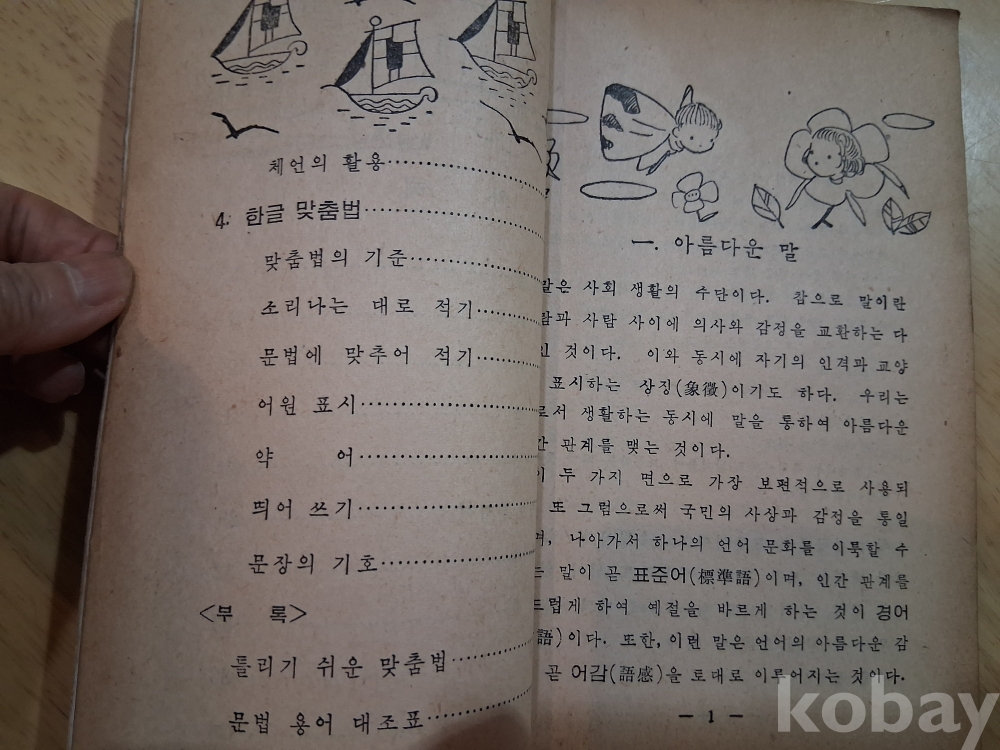 체언의 활용
4. 한글 맞춤법
맞춤법의 기준
소리나는 대로 적기
문법에 맞추어 적기
어원 표시
약 어
띄어 쓰기
문장의 기호
<부 록>
틀리기 쉬운 맞춤법
문법 용어 대조표
一. 아름다운 말
말은 사회 생활의 수단이다. 참으로 말이란
사람 사이에 의사와 감정을 교환하는 다
것이다. 이와 동시에 자기의 인격과 교양
표시하는 상징(象徵)이기도 하다. 우리는
로서 생활하는 동시에 말을 통하여 아름다운
관계를 맺는 것이다.
두 가지 면으로 가장 보편적으로 사용되
또 그럼으로써 국민의 사상과 감정을 통일
며, 나아가서 하나의 언어 문화를 이룩할 수
는 말이 곧 표준어(標準語)이며, 인간 관계를
드럽게 하여 예절을 바르게 하는 것이 경어
語)이다. 또한, 이런 말은 언어의 아름다운 감
곧 어감(語感)을 토대로 이루어지는 것이다.
— 1 —
kobay